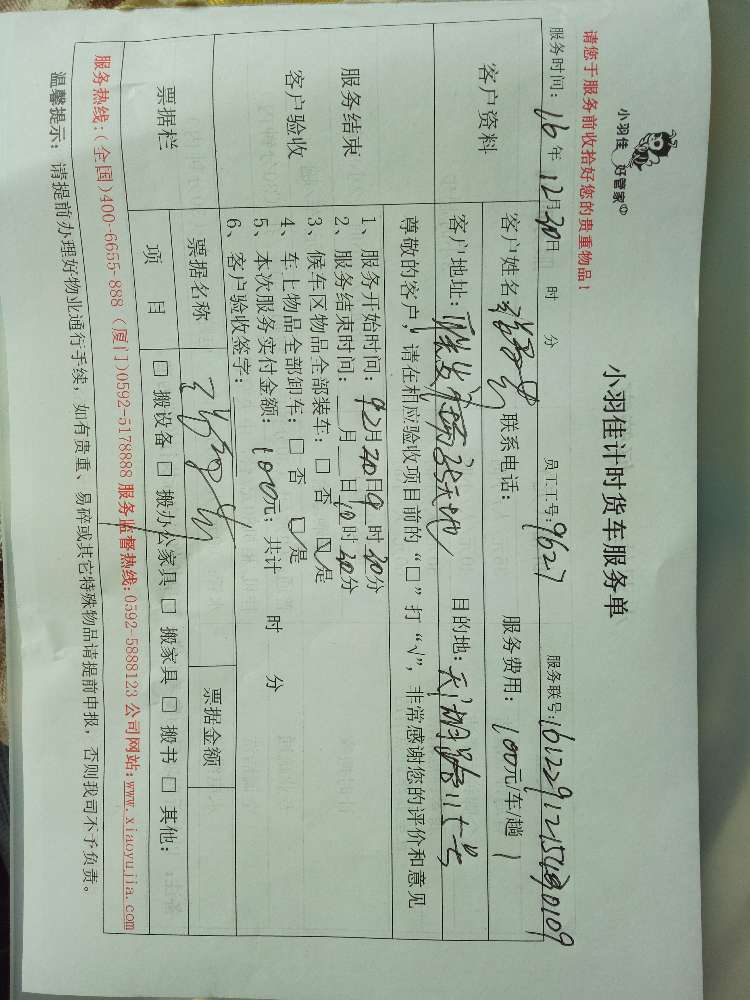 小羽佳 好管家
小羽佳计时货车服务单
请您于服务前收拾好您的贵重物品！
服务时间：16年12月30日 时 分 员工工号：9627 服务联号：
客户资料
客户姓名： 联系电话： 服务费用：100元/车/趟
客户地址： 目的地：天湖路115号
服务结束
客户验收
尊敬的客户，请在相应验收项目前的“□”打“√”，非常感谢您的评价和意见
1、服务开始时间：12月30日9时20分
2、服务结束时间：__月__日10时20分
3、候车区物品全部装车：□ 否 ☑是
4、车上物品全部卸车：□ 否 ☑是
5、本次服务实付金额：100元；共计 时 分
6、客户验收签字：
票据栏
票据名称 票据金额
项 目 □ 搬设备 □ 搬办公家具 □ 搬家具 □ 搬书 □ 其他：
服务热线：(全国)400-6655-888 (厦门)0592-5178888 服务监督热线:0592-5888123 公司网站:www.xiaoyujia.com
温馨提示： 请提前办理好物业通行手续，如有贵重、易碎或其它特殊物品请提前申报，否则我司不予负责。